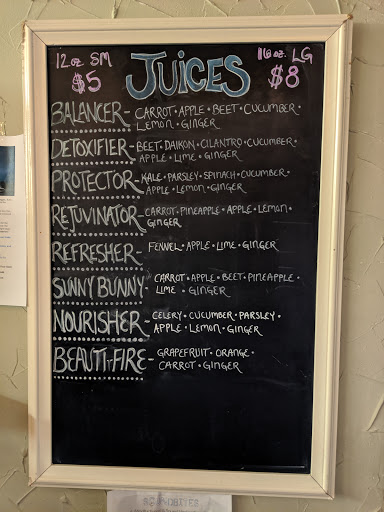 12 oz. SM
$5
JUICES
16 oz. LG
$8
BALANCER- CARROT • APPLE • BEET • CUCUMBER •
LEMON • GINGER
DETOXIFIER- BEET • DAIKON • CILANTRO • CUCUMBER •
APPLE • LIME • GINGER
PROTECTOR- KALE • PARSLEY • SPINACH • CUCUMBER •
APPLE • LEMON • GINGER
REJUVINATOR- CARROT • PINEAPPLE • APPLE • LEMON •
GINGER
REFRESHER- FENNEL • APPLE • LIME • GINGER
SUNNY BUNNY- CARROT • APPLE • BEET • PINEAPPLE •
LIME • GINGER
NOURISHER- CELERY • CUCUMBER • PARSLEY •
APPLE • LEMON • GINGER
BEAUTI-FIRE- GRAPEFRUIT • ORANGE •
CARROT • GINGER